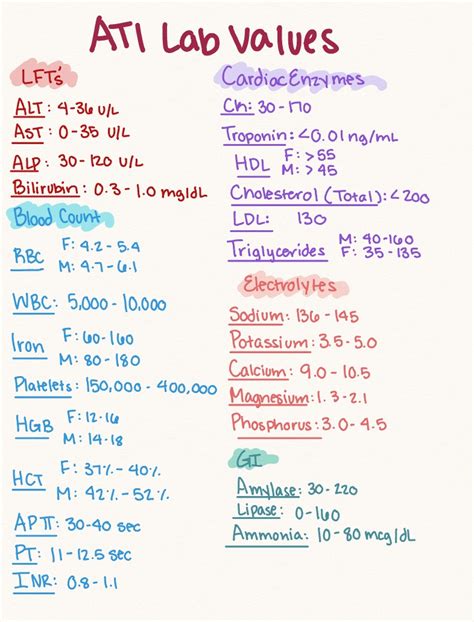 ATI Lab Values
LFT's
ALT: 4-36 u/L
AST: 0-35 u/L
ALP: 30-120 u/L
Bilirubin: 0.3-1.0 mg/dL
Blood Count
RBC F: 4.2-5.4
M: 4.7-6.1
WBC: 5,000-10,000
Iron F: 60-160
M: 80-180
Platelets: 150,000-400,000
HGB F: 12-16
M: 14-18
HCT F: 37%-40%
M: 42%-52%
APTT: 30-40 sec
PT: 11-12.5 sec
INR: 0.8-1.1
Cardiac Enzymes
CK: 30-170
Troponin: <0.01 ng/mL
HDL F: >55
M: >45
Cholesterol (Total): <200
LDL: 130
Triglycerides M: 40-160
F: 35-135
Electrolytes
Sodium: 136-145
Potassium: 3.5-5.0
Calcium: 9.0-10.5
Magnesium: 1.3-2.1
Phosphorus: 3.0-4.5
GI
Amylase: 30-220
Lipase: 0-160
Ammonia: 10-80 mcg/dL